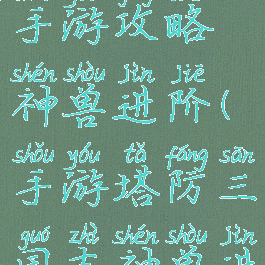 手游攻略
shén shòu jìn jiē
神兽进阶(
shǒu yóu tǎ fáng sān
手游塔防三
guó zhà shén shòu jìn